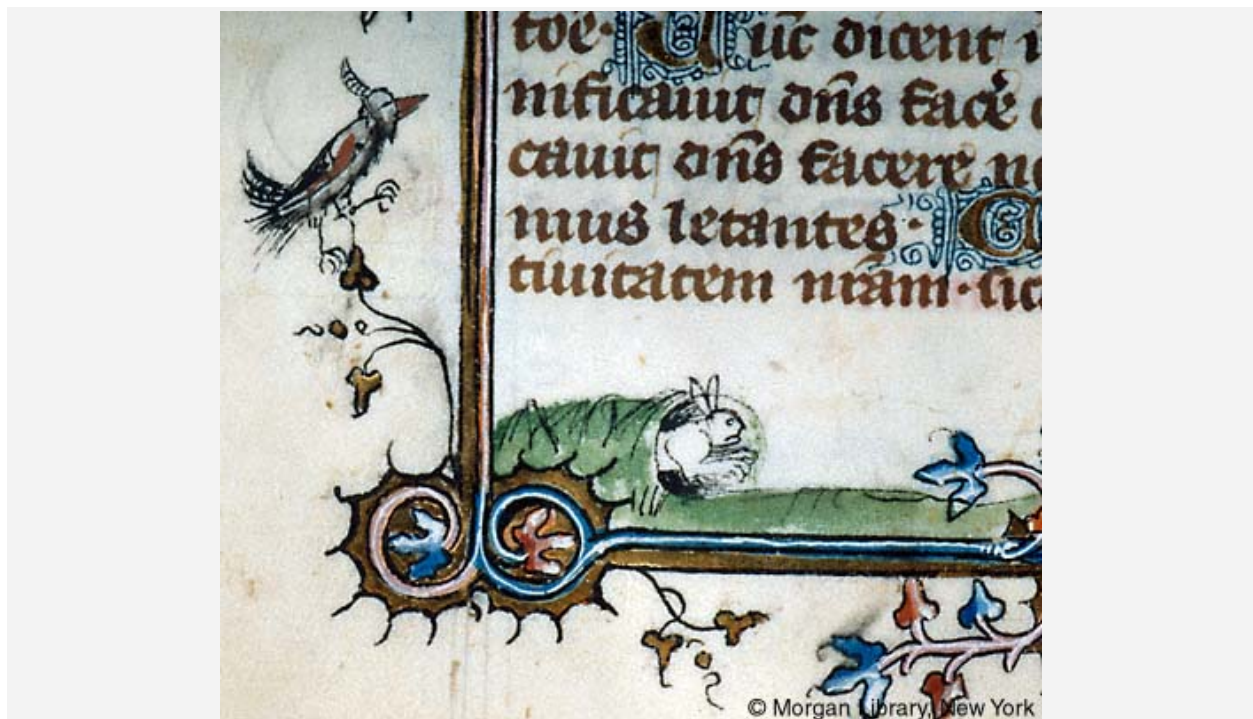 toē· Tūc dicent i
nificauit dn̄s face᷑
cauit dn̄s facere no
mus letantes·
tiuitatem nr̄am· sic
© Morgan Library, New York